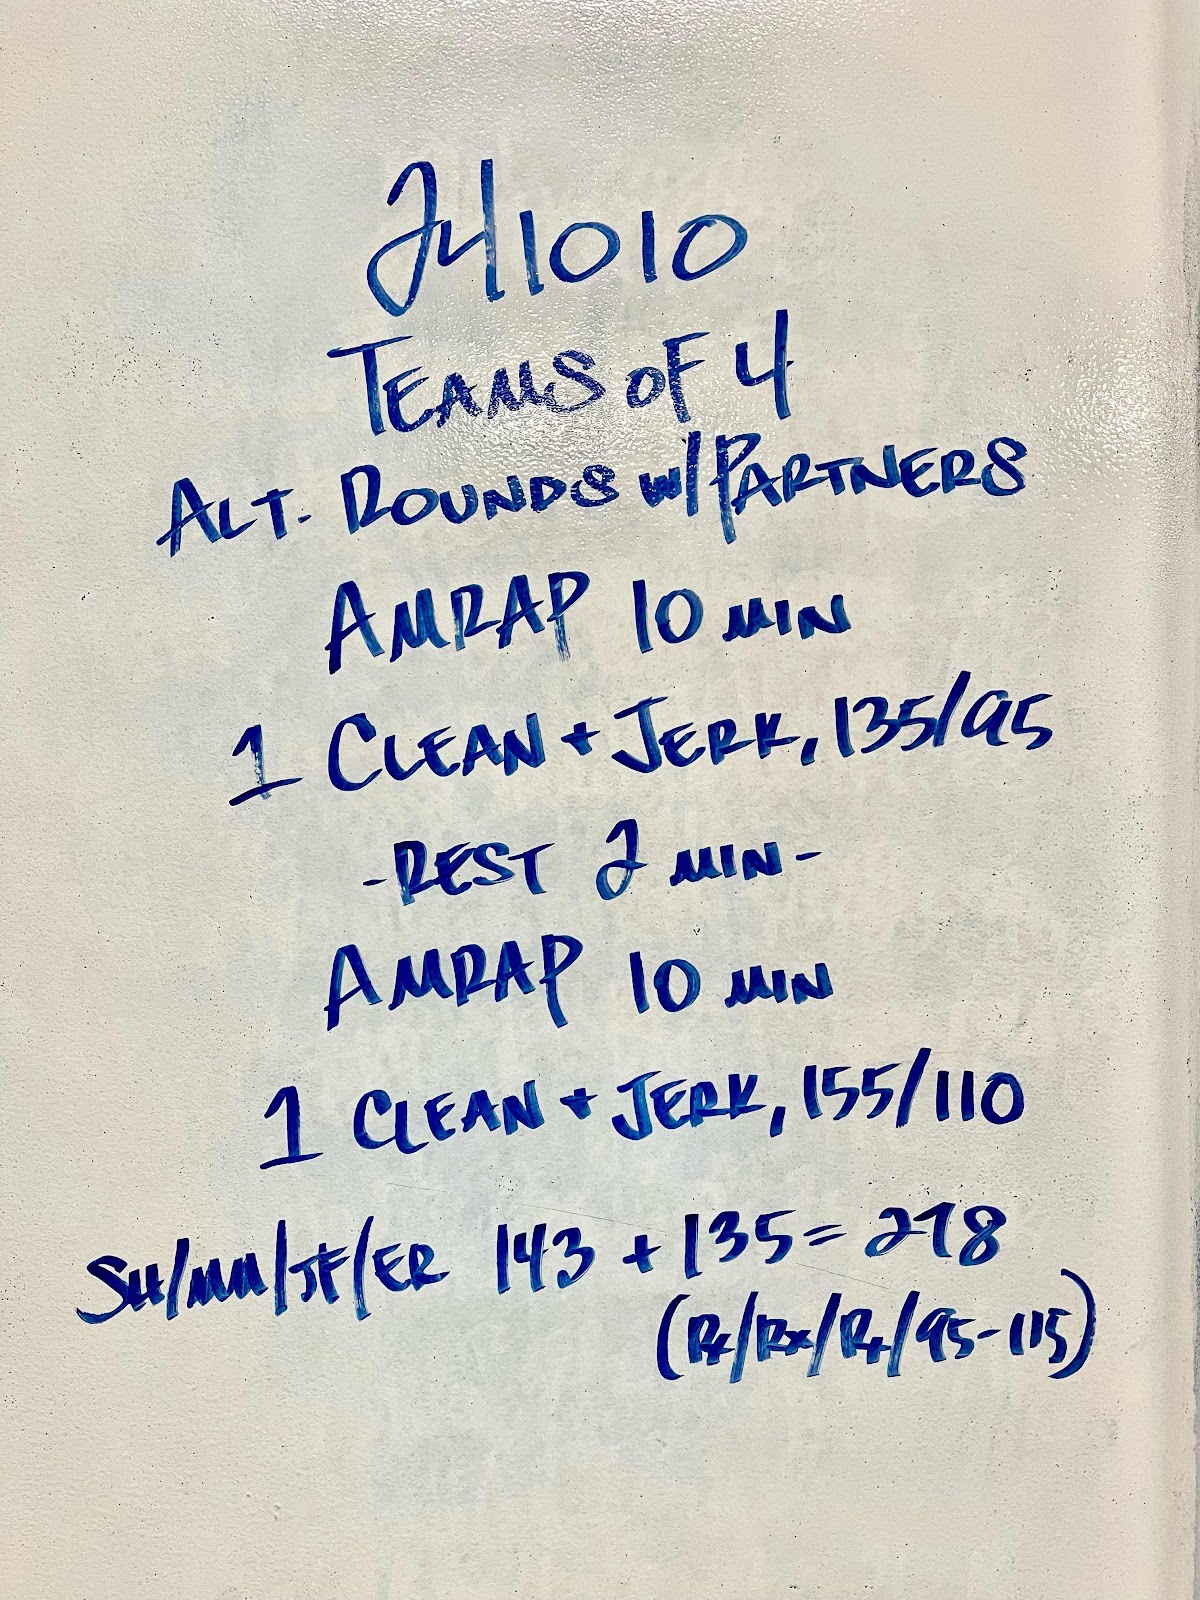 241010
TEAMS OF 4
ALT. ROUNDS W/PARTNERS
AMRAP 10 MIN
1 CLEAN + JERK, 135/95
-REST 2 MIN-
AMRAP 10 MIN
1 CLEAN + JERK, 155/110
SH/MM/JF/ER 143 + 135 = 278
(Rx/Rx/Rx/95-115)